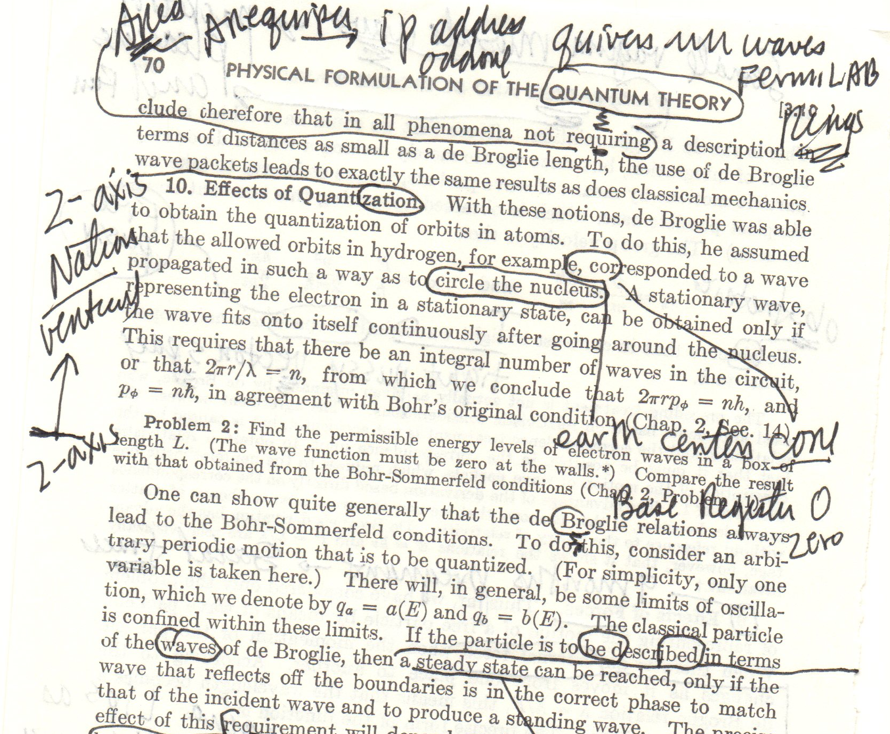 Aries Arequipes → ip address quivers un waves
oddone FermiLAB
70 PHYSICAL FORMULATION OF THE QUANTUM THEORY
rings
clude therefore that in all phenomena not requiring a description in
terms of distances as small as a de Broglie length, the use of de Broglie
wave packets leads to exactly the same results as does classical mechanics.
10. Effects of Quantization. With these notions, de Broglie was able
to obtain the quantization of orbits in atoms. To do this, he assumed
that the allowed orbits in hydrogen, for example, corresponded to a wave
propagated in such a way as to circle the nucleus. A stationary wave,
representing the electron in a stationary state, can be obtained only if
the wave fits onto itself continuously after going around the nucleus.
This requires that there be an integral number of waves in the circuit,
or that 2πr/λ = n, from which we conclude that 2πrpϕ = nh, and
pϕ = nħ, in agreement with Bohr's original condition (Chap. 2, Sec. 14).
Z-axis
Nation
Z-axis
earth centers core
Problem 2: Find the permissible energy levels of electron waves in a box of
length L. (The wave function must be zero at the walls.*) Compare the result
with that obtained from the Bohr-Sommerfeld conditions (Chap. 2, Problem 11).
Base Register 0
zero
One can show quite generally that the de Broglie relations always
lead to the Bohr-Sommerfeld conditions. To do this, consider an arbi-
trary periodic motion that is to be quantized. (For simplicity, only one
variable is taken here.) There will, in general, be some limits of oscilla-
tion, which we denote by qa = a(E) and qb = b(E). The classical particle
is confined within these limits. If the particle is to be described in terms
of the waves of de Broglie, then a steady state can be reached, only if the
wave that reflects off the boundaries is in the correct phase to match
that of the incident wave and to produce a standing wave. The precise
effect of this requirement will